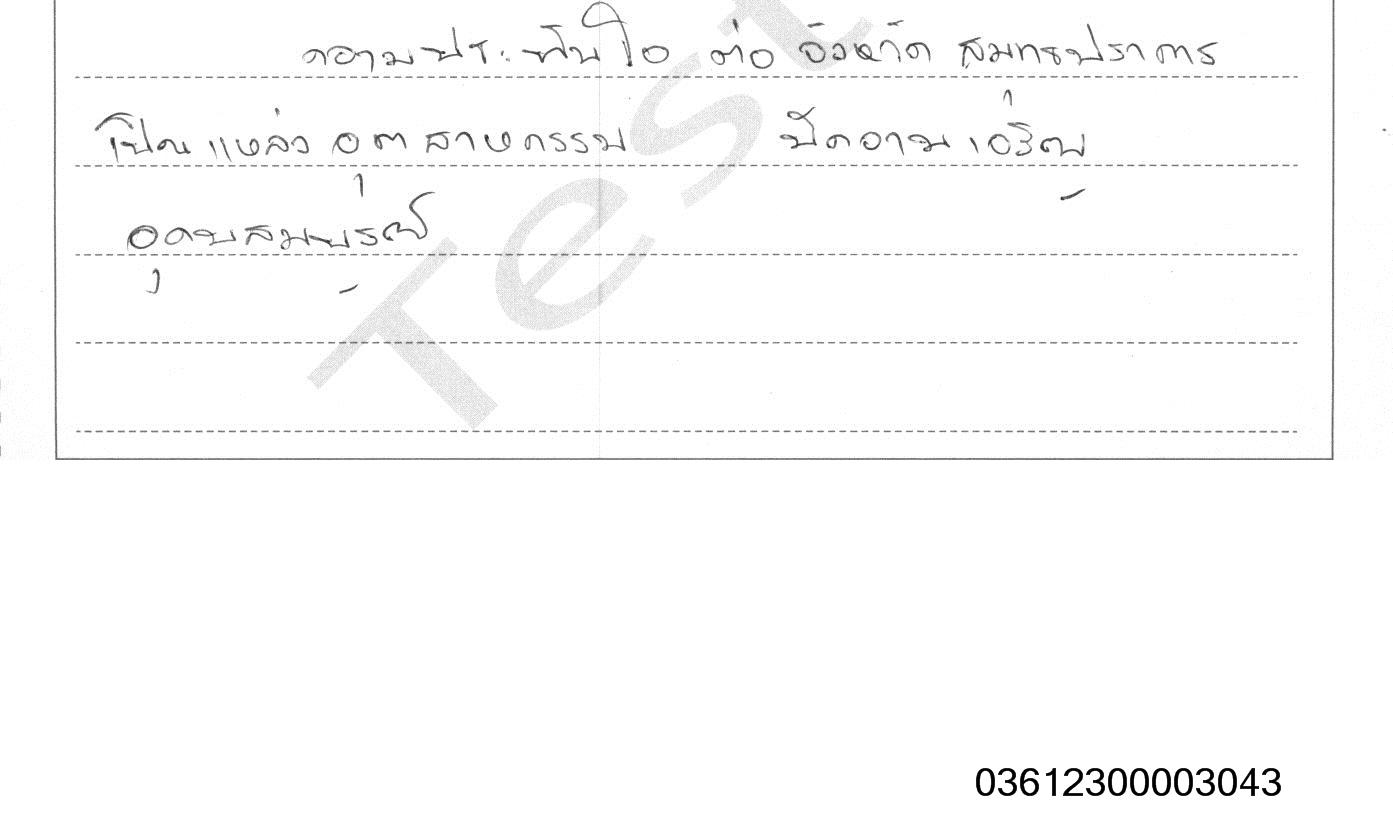 ความประทับใจ ต่อ จังหวัด สมุทรปราการ
เป็นแหล่ง อุตสาหกรรม มีความเจริญ
อุดมสมบูรณ์
Test
03612300003043